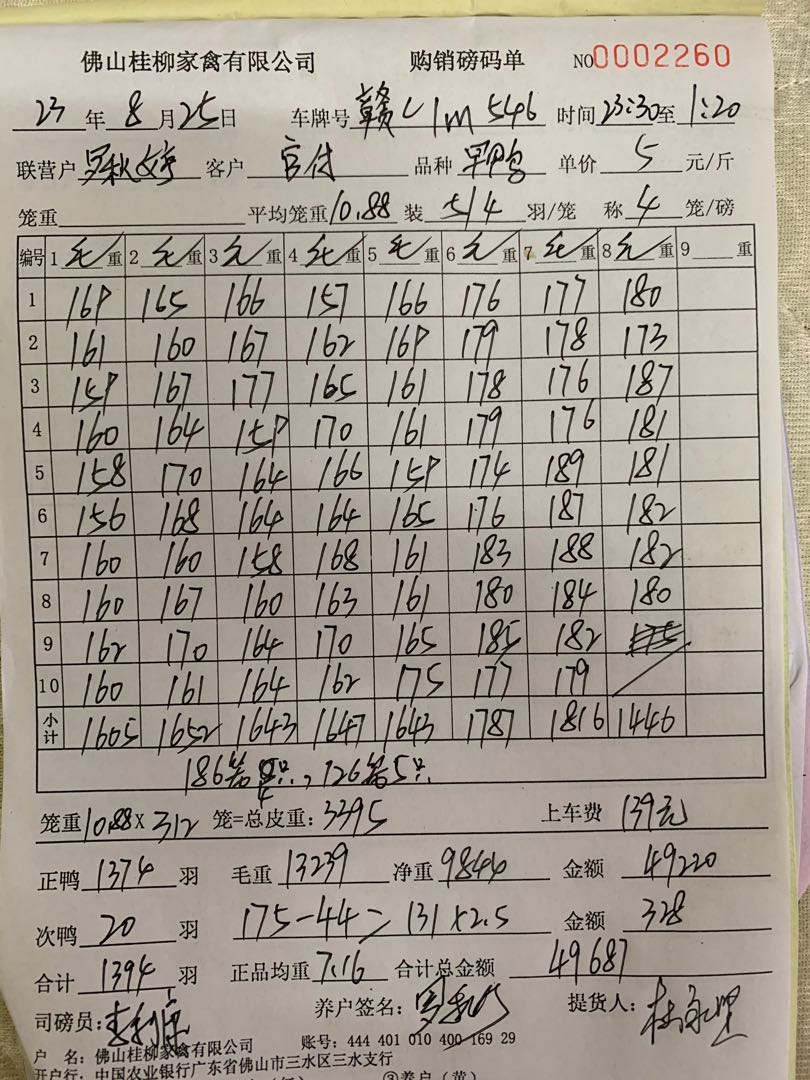 佛山桂柳家禽有限公司 购销磅码单 NO0002260
23年8月25日 车牌号赣C1m546 时间23:30至1:20
联营户罗秋婷 客户 品种旱鸭 单价5元/斤
笼重 平均笼重10.88 装5/4羽/笼 称4笼/磅
编号 1毛重 2毛重 3毛重 4毛重 5毛重 6毛重 7毛重 8毛重 9重
1 169 165 166 157 166 176 177 180
2 161 160 167 162 169 179 178 173
3 159 167 177 165 161 178 176 187
4 160 164 159 170 161 179 176 181
5 158 170 164 166 159 174 189 181
6 156 168 164 164 165 176 187 182
7 160 160 158 168 161 183 188 182
8 160 167 160 163 161 180 184 180
9 162 170 164 170 165 185 182 175
10 160 161 164 162 175 177 179
小计 1605 1652 1643 1647 1643 1787 1816 1446
186笼4只，126笼5只
笼重10.88X312笼=总皮重：3395 上车费139元
正鸭1374羽 毛重13239 净重9844 金额49220
次鸭20羽 175-44=131X2.5 金额328
合计1394羽 正品均重7.16 合计总金额49687
司磅员： 养户签名： 提货人：
户 名：佛山桂柳家禽有限公司 账号：444 401 010 400 169 29
开户行：中国农业银行广东省佛山市三水区三水支行
③养户（黄）